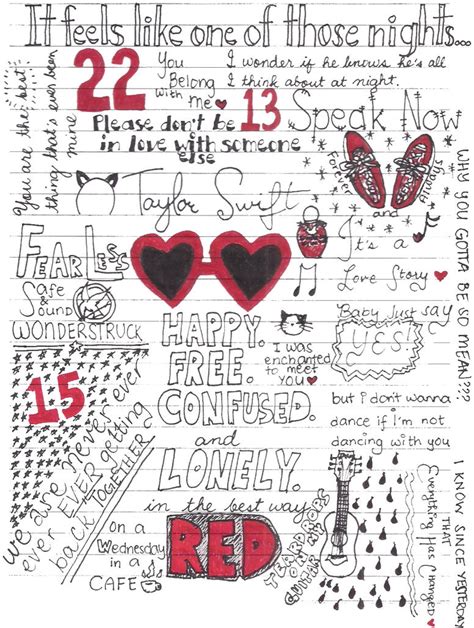 It feels like one of those nights...
You are the best
thing that's ever been
mine
22
You
Belong
with
me
I wonder if he knows he's all
I think about at night.
13
Speak Now
Please don't be
in love with someone
else
Taylor Swift
Forever
and
Always
WHY YOU GOTTA BE SO MEAN???
FEARLESS
Safe
&
Sound
WONDERSTRUCK
It's a
Love Story
Baby Just say
YES!
HAPPY.
FREE.
CONFUSED.
and
LONELY.
in the best way
I was
enchanted
to meet
YOU
15
we are never ever
ever EVER getting
back TOGETHER
but I don't wanna
dance if I'm not
dancing with you
on a
Wednesday
in a
CAFE
RED
TEARDROPS
ON MY
GUITAR
I KNOW SINCE YESTERDAY
THAT
Everything Has Changed